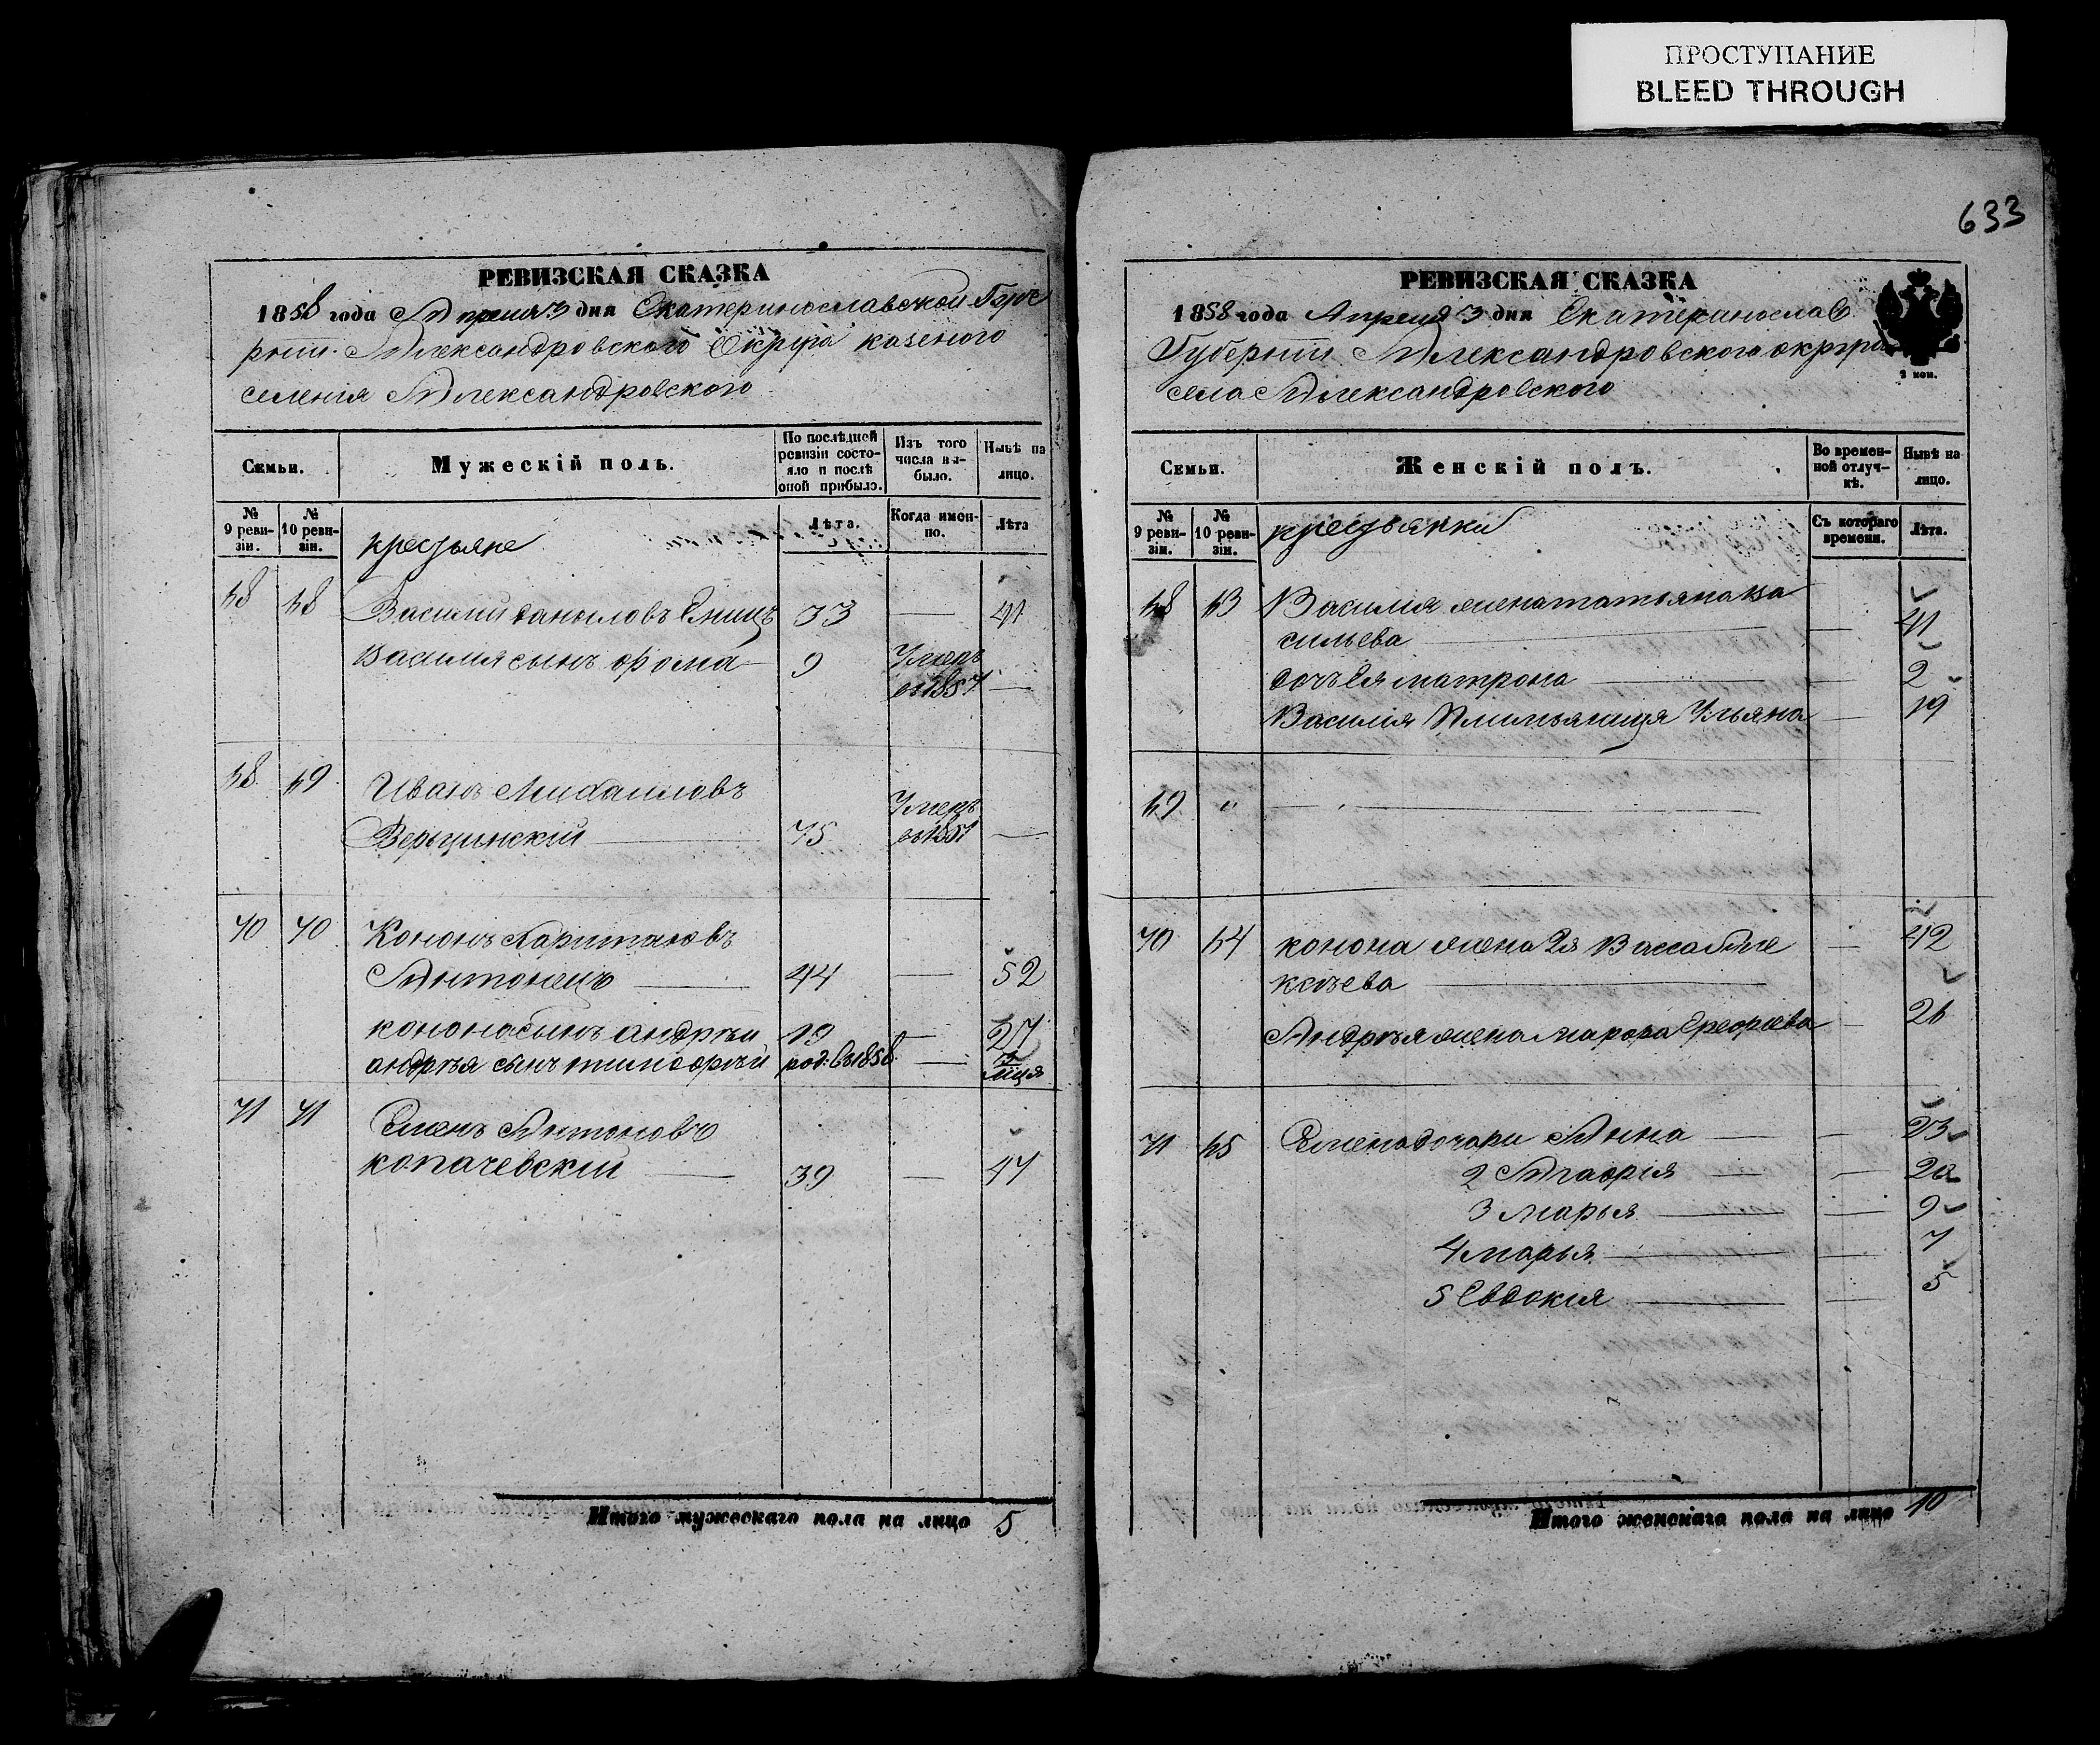 ПРОСТУПАНИЕ
BLEED THROUGH
633
РЕВИЗСКАЯ СКАЗКА
1858 года Апреля 3 дня Екатеринославской Губе
рнии Александровского Округа казеного
селения Александровского
Семьи.
Мужескій полъ.
По послѣдней ревизіи состо-
яло и послѣ
оной прибыло.
Изъ того
числа вы-
было.
Нынѣ на
лицо.
№
9 реви-
зіи.
№
10 реви-
зіи.
крестьяне
Лѣта.
Когда имен-
но.
Лѣта
68 68 Василий Даниловъ 33 — 41
Василия сынъ Фома 9 Умеръ
въ 1857 —
68 69 Иванъ Михаиловъ
Вершинский 75 Умеръ
въ 1851 —
70 70 Кононъ Харитоновъ
Антонецъ 44 — 52
конона сынъ андрѣй 19 — 27
андрѣя сынъ тимофѣй род: въ 1858 — мця
71 71 Антоновъ
копачевскій 39 — 47
Итого мужескаго пола на лицо 5
РЕВИЗСКАЯ СКАЗКА
1858 года Апреля 3 дня Екатеринослав
Губернии Александровского округа
села Александровского
2 коп.
Семьи.
Женскій полъ.
Во времен-
ной отлуч-
кѣ.
Нынѣ на
лицо.
№
9 реви-
зіи.
№
10 реви-
зіи.
крестьянки
Съ котораго
времени.
Лѣта.
68 63 Василия жена татьяна Ва
сильева — 41
дочь Ея матрона — 2
Василія Племьяница Ульяна — 19
69 " —
70 64 конона жена 2я Васса Але
ксѣева — 42
Андрѣя жена Марфа — 26
71 65 дочери Анна — 23
2 Агафія — 20
3 Марья — 9
4 марья — 7
5 Евдокія — 5
Итого женскаго пола на лицо 10